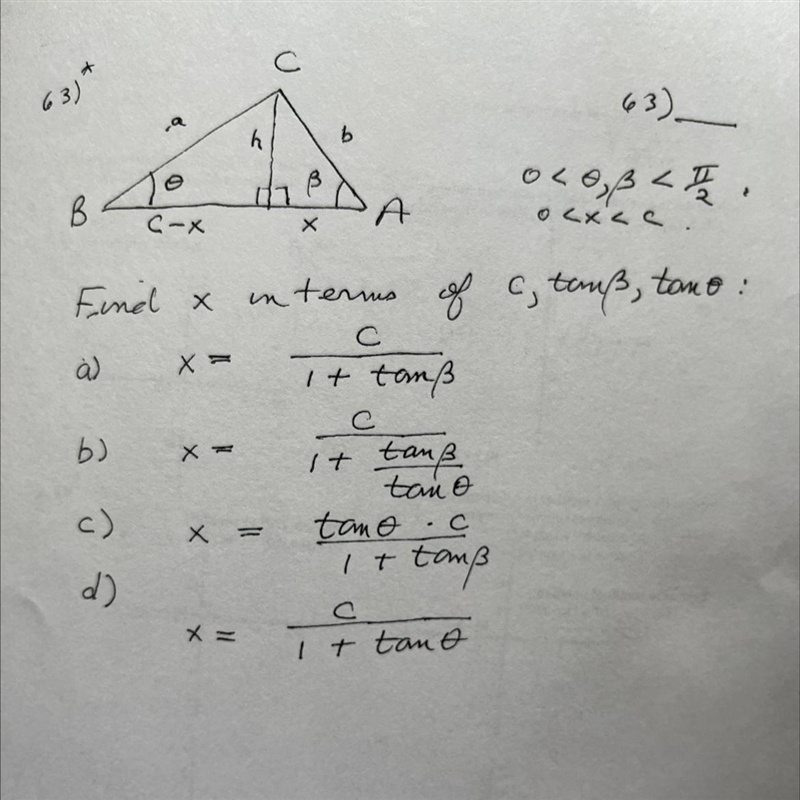 63)*
C
63)___
a
h
b
θ
β
0 < θ, β < π/2 .
B
A
c-x
x
0 < x < c .
Find x in terms of c, tanβ, tanθ :
a) x = c / (1 + tanβ)
b) x = c / (1 + tanβ / tanθ)
c) x = tanθ · c / (1 + tanβ)
d)
x = c / (1 + tanθ)